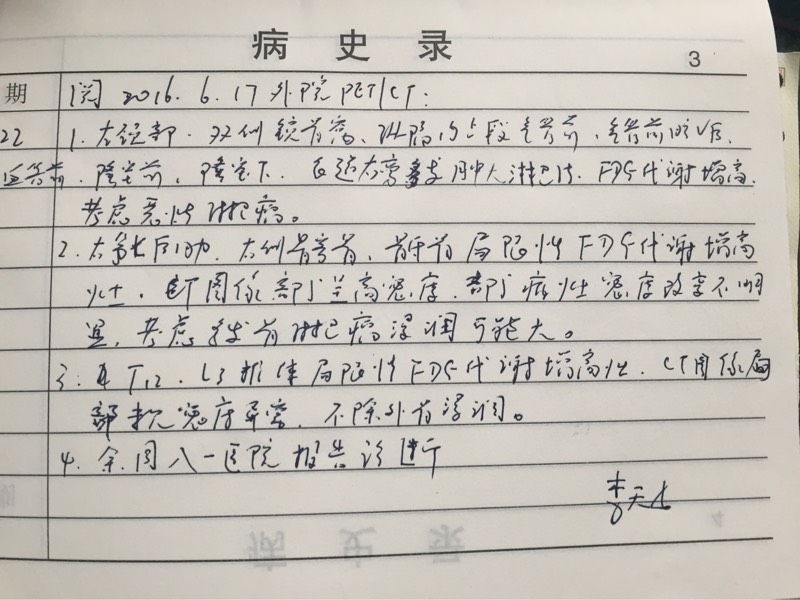 病 史 录
3
期 阅 2016. 6. 17 外院 PET/CT:
22 1. 右颈部. 双侧锁骨窝. 纵隔内上段气管前. 气管前腔V后.
隆突前. 隆突下. 多发肿大淋巴结. FDG代谢增高.
考虑恶性淋巴瘤。
2. 右第七后肋. 右侧 骨局限性FDG代谢增高
灶. CT图像部分呈高密度. 部分病灶密度改变不明
显. 考虑 淋巴瘤浸润可能大。
3. T12. L3椎体局限性FDG代谢增高灶. CT图像局
部 密度异常. 不除外 浸润。
4. 余同八一医院报告诊断
病 史 录
4